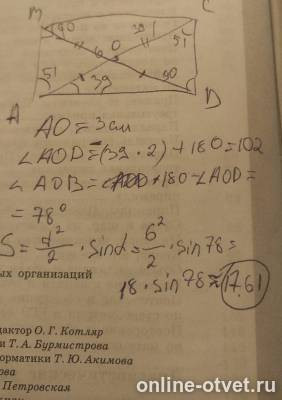 M C
40 39
O 51
51 39 40
A D
AO = 3 см
∠AOD = -(39 · 2) + 180 = 102
∠AOB = 180 - ∠AOD =
= 78°
S = d²/2 · sinα = 6²/2 · sin78 =
18 · sin78 ≈ 17,61
ых организаций
дактор О. Г. Котляр
и Т. А. Бурмистрова
орматики Т. Ю. Акимова
ова
Петровская
online-otvet.ru